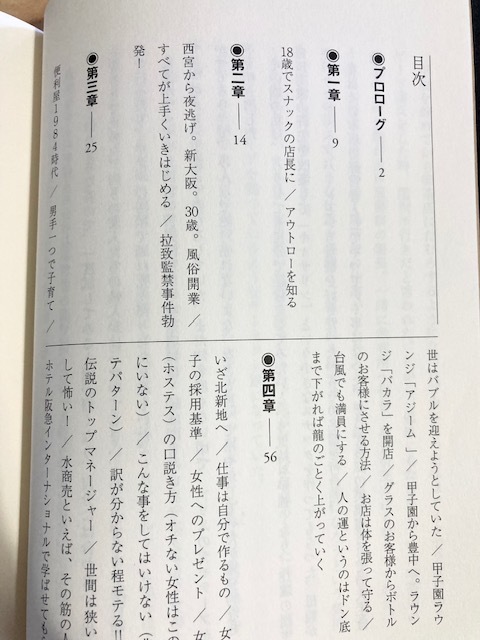 目次
●プロローグ――2
●第一章――9
18歳でスナックの店長に／アウトローを知る
●第二章――14
西宮から夜逃げ。新大阪。30歳。風俗開業／
すべてが上手くいきはじめる／拉致監禁事件勃
発！
●第三章――25
便利屋1984時代／男手一つで子育て／
世はバブルを迎えようとしていた／甲子園ラウ
ンジ「アジーム」／甲子園から豊中へ。ラウン
ジ「バカラ」を開店／グラスのお客様からボトル
のお客様にさせる方法／お店は体を張って守る／
台風でも満員にする／人の運というのはドン底
まで下がれば龍のごとく上がっていく
●第四章――56
いざ北新地へ／仕事は自分で作るもの／女
子の採用基準／女性へのプレゼント／女
（ホステス）の口説き方（オチない女性はこの
にいない）／こんな事をしてはいけない（
テパターン）／訳が分からない程モテる!!
伝説のトップマネージャー／世間は狭い
して怖い！／水商売といえば、その筋の
ホテル阪急インターナショナルで学ばせても